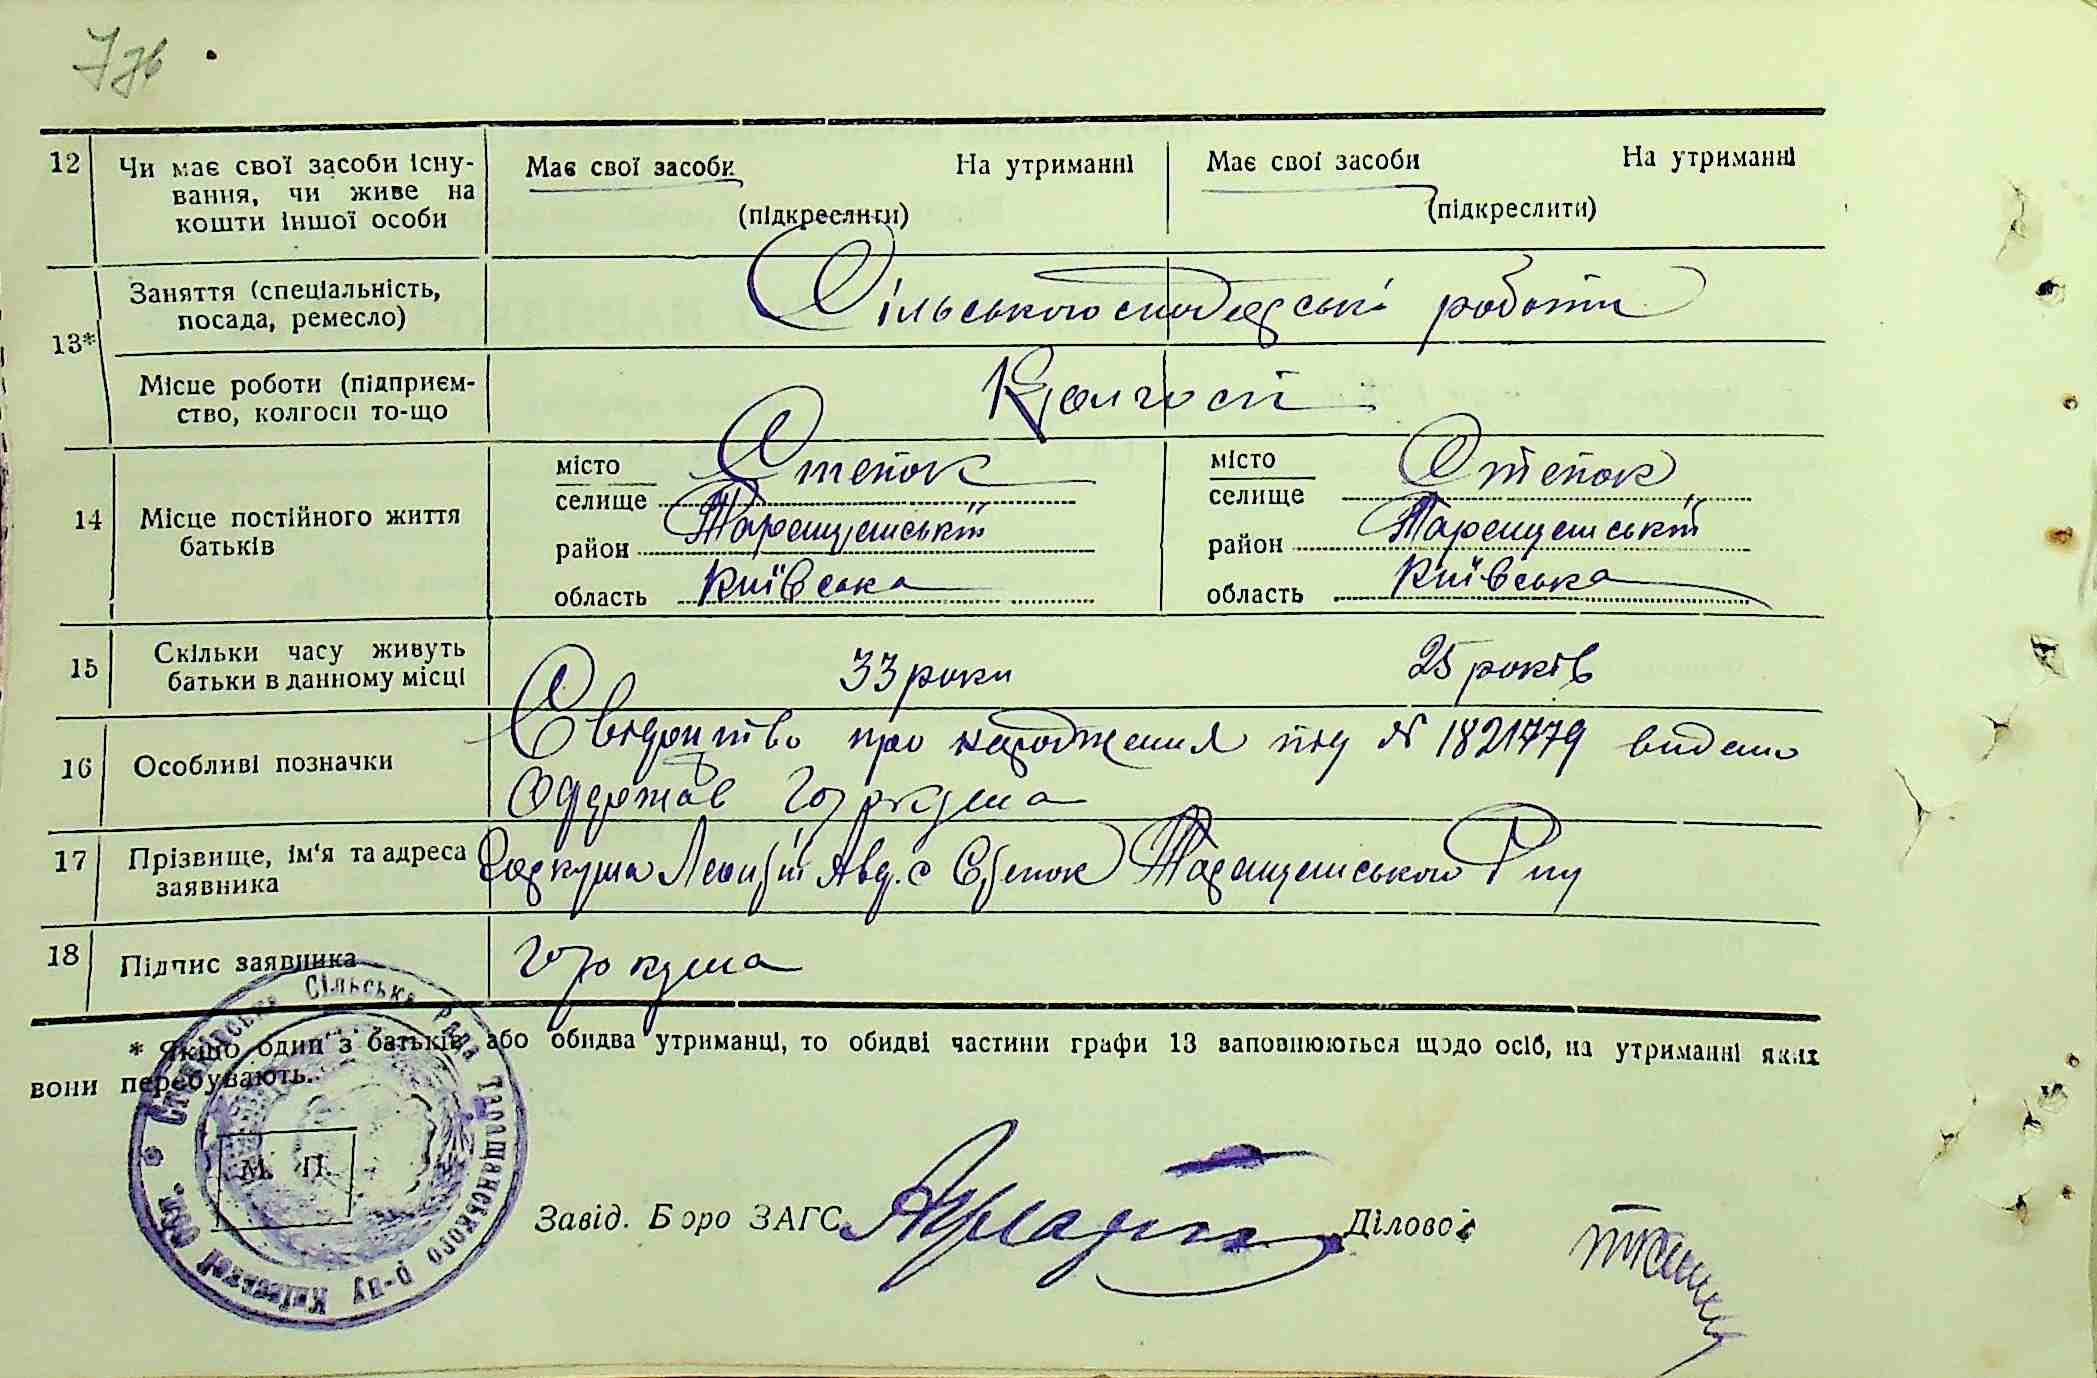 7 зв
12 Чи має свої засоби існу-
вання, чи живе на
кошти іншої особи
Має свої засоби На утриманні
(підкреслити)
Має свої засоби На утриманні
(підкреслити)
13* Заняття (спеціальність,
посада, ремесло)
Сільськогосподарські роботи
Місце роботи (підприєм-
ство, колгосп то-що
Колгосп
14 Місце постійного життя
батьків
місто
селище Степок
район Таращанський
область Київська
місто
селище Степок
район Таращанський
область Київська
15 Скільки часу живуть
батьки в данному місці
33 роки 25 років
16 Особливі позначки
Свідоцтво про народження під № 1821779 видано
Одержав Горкуша
17 Прізвище, ім'я та адреса
заявника
Горкуша Леонтій Авд. с Степок Таращанського Р-ну
18 Підпис заявника
Горкуша
* Якщо один з батьків або обидва утриманці, то обидві частини графи 13 заповнюються щодо осіб, на утриманні яких
вони перебувають.
Степківська Сільська Рада Таращанського р-ну Київської обл.
М. П.
Завід. Бюро ЗАГС Діловод